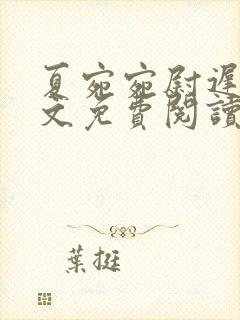 夏宛宛尉遲
文免費閱讀
葉挺